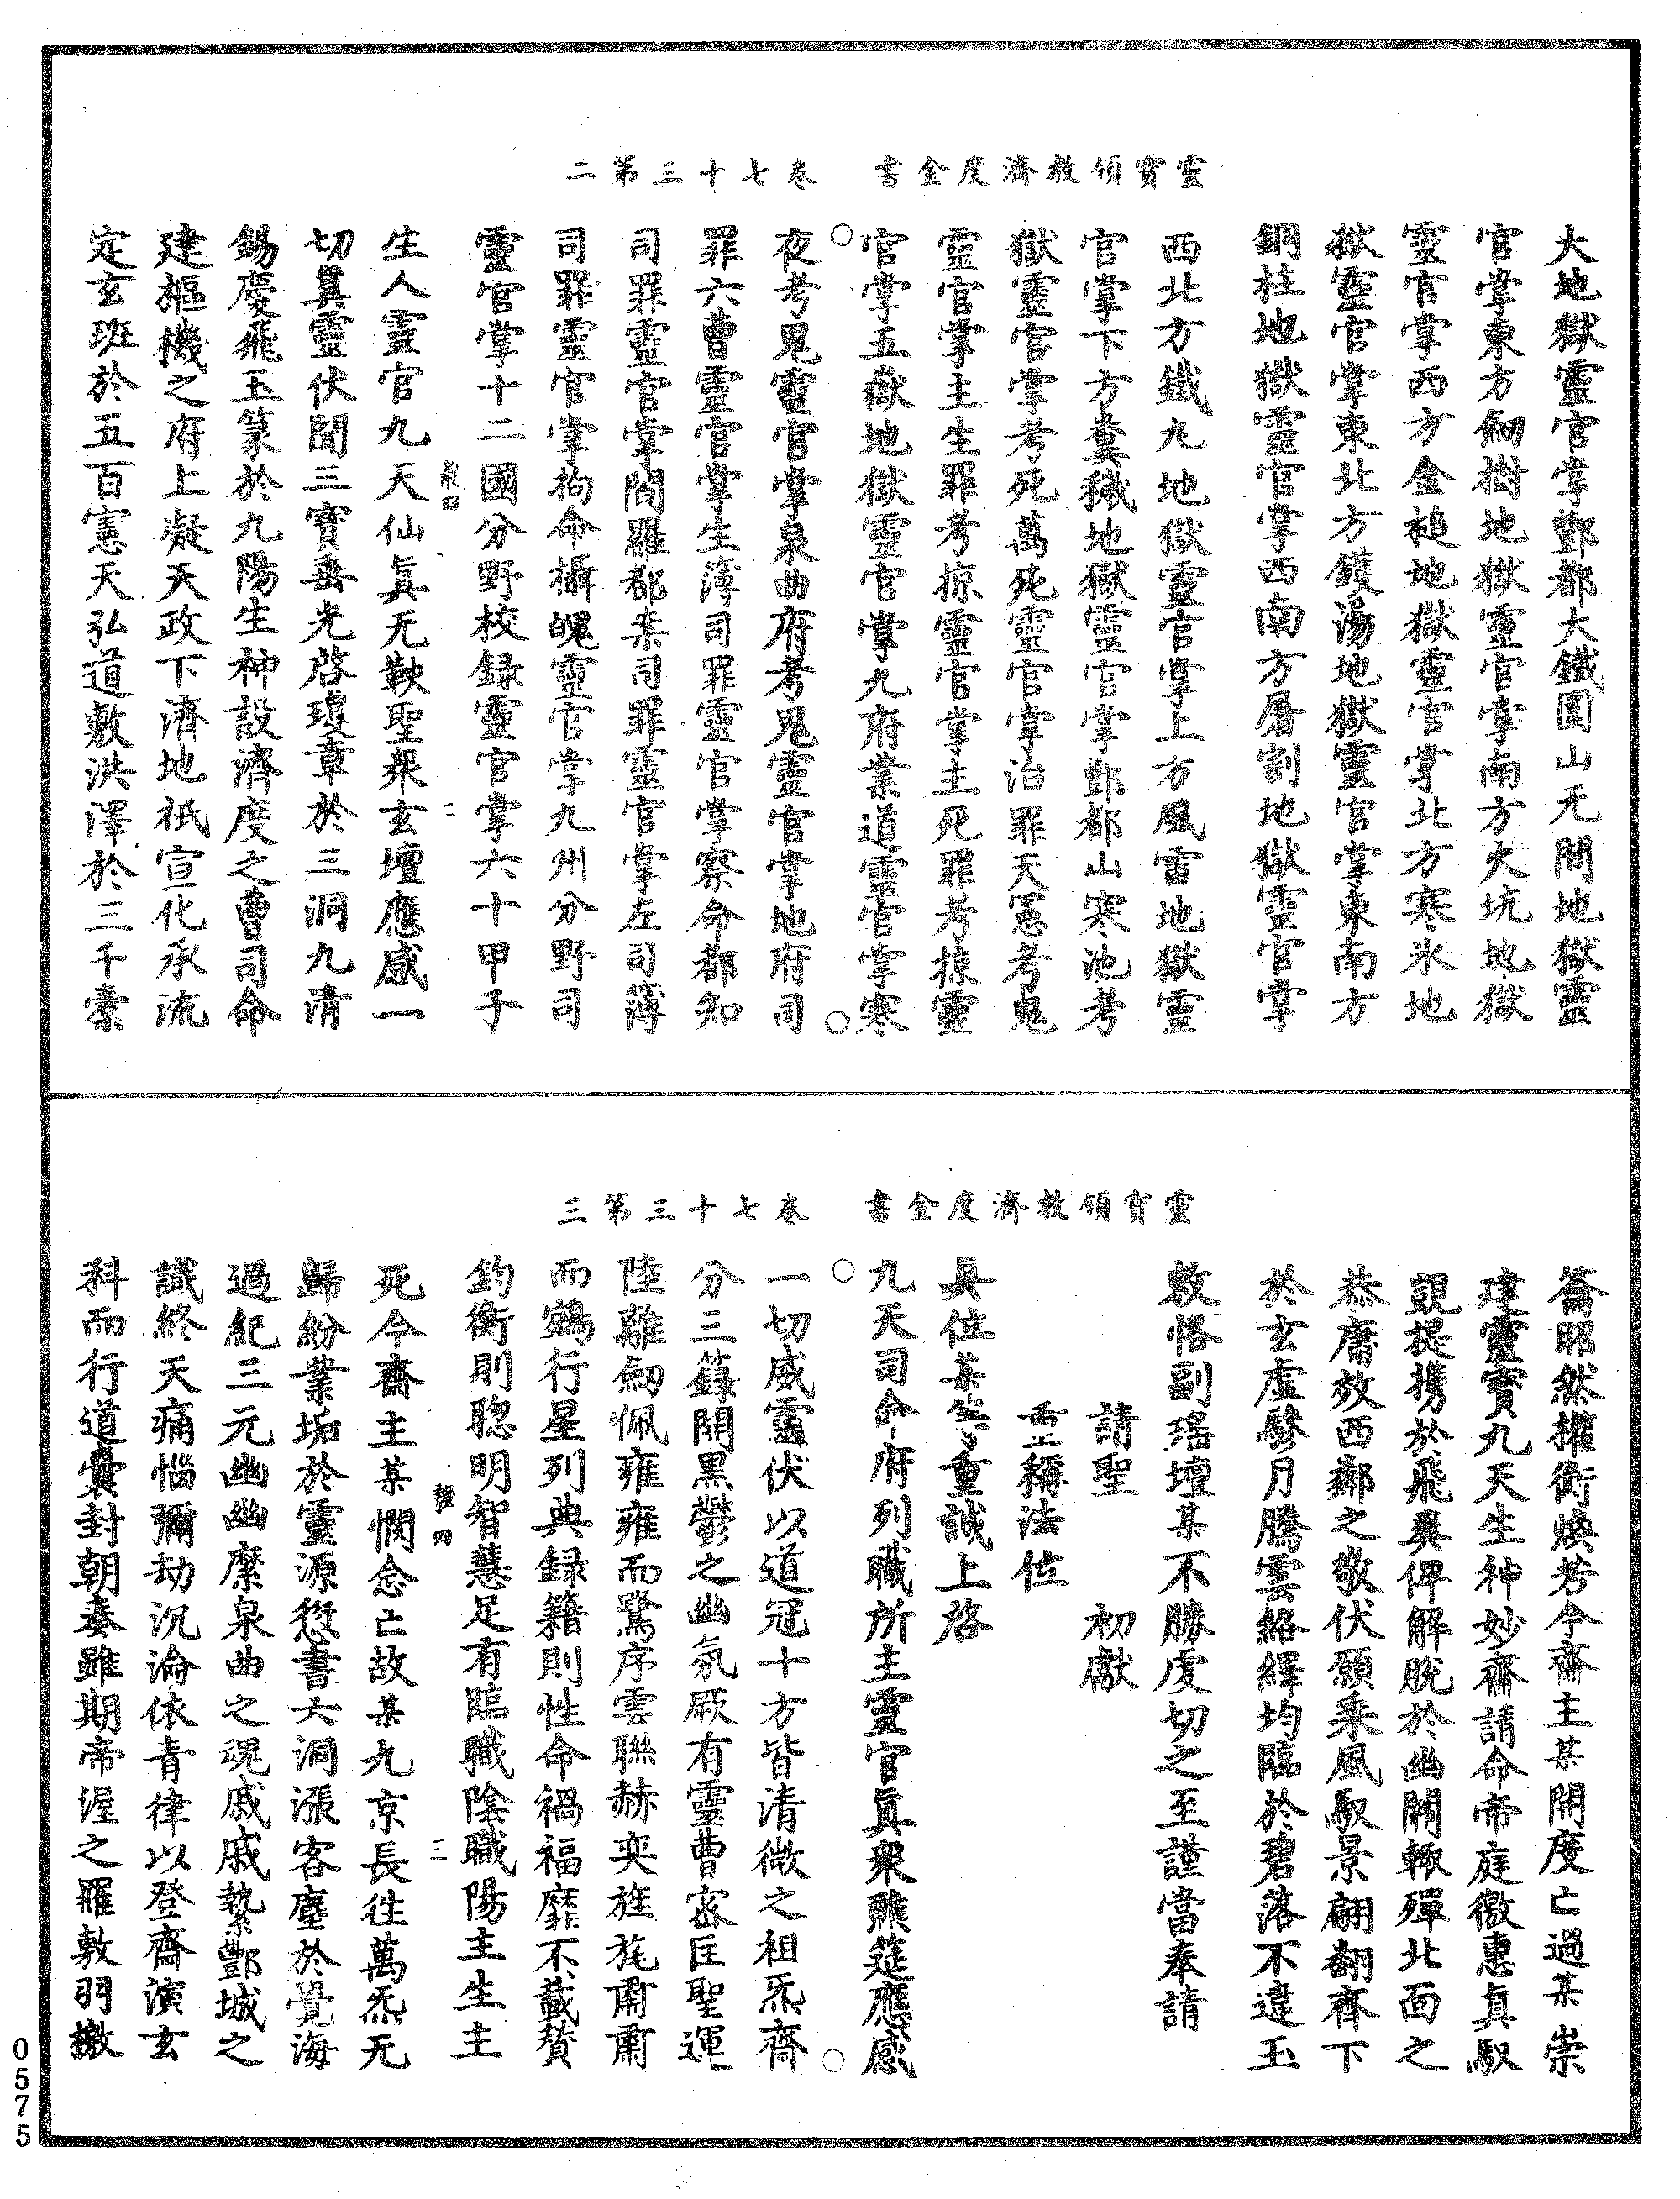 靈寶領教濟度金書　卷七十三第二
大地獄靈官掌酆都大鐵圍山无間地獄靈
官掌東方劒樹地獄靈官掌南方火坑地獄
靈官掌西方金槌地獄靈官掌北方寒氷地
獄靈官掌東北方鑊湯地獄靈官掌東南方
銅柱地獄靈官掌西南方屠割地獄靈官掌
西北方鐵丸地獄靈官掌上方風雷地獄靈
官掌下方糞穢地獄靈官掌酆都山寒池考
獄靈官掌考死萬死靈官掌治罪天憲考鬼
靈官掌主生罪考掠靈官掌主死罪考掠靈
官掌五嶽地獄靈官掌九府業道靈官掌寒
夜考鬼靈官掌泉曲府考鬼靈官掌地府司
罪六曹靈官掌生簿司罪靈官掌察命都知
司罪靈官掌閻羅都案司罪靈官掌左司簿
司罪靈官掌拘命攝魄靈官掌九州分野司
靈官掌十二國分野校録靈官掌六十甲子
二
生人靈官九天仙眞无鞅聖衆玄壇應感一
切眞靈伏聞三寶垂光啓瓊章於三洞九清
錫慶飛玉篆於九陽生神設濟度之曹司命
建樞機之府上凝天政下濟地祇宣化承流
定玄班於五百憲天弘道敷洪澤於三千橐
靈寶領教濟度金書　卷七十三第三
籥昭然權衡煥若今齋主某開度亡過某　崇
建靈寶九天生神妙齋請命帝庭徼惠眞馭
覬提攜於飛爽俾解脫於幽關輙殫北面之
恭庸效西鄰之敬伏願乘風馭景翩翻齊下
於玄虛驂月騰雲絡繹均臨於碧落不違玉
敕恪副瑤壇某不勝虔切之至謹當奉請
請聖　初獻
重稱法位
具位某等重誠上啓
九天司命府列職所主靈官眞衆醮筵應感
一切威靈伏以道冠十方皆清微之祖炁齋
分三籙開黑鬱之幽氛厥有靈曹密匡聖運
陸離劒佩雍雍而鷺序雲聯赫奕旌旄肅肅
而鵷行星列典録籍則性命禍福靡不載賛
鈞衡則聰明智慧足有臨職陰職陽主生主
三
死今齋主某憫念亡故某九京長往萬炁无
歸紛業垢於靈源愆書六洞漲客塵於覺海
過紀三元幽幽縻泉曲之魂戚戚縶酆城之
識終天痛惱彌劫沉淪依青律以登齋演玄
科而行道囊封朝奏雖期帝渥之羅敷羽檄
0575